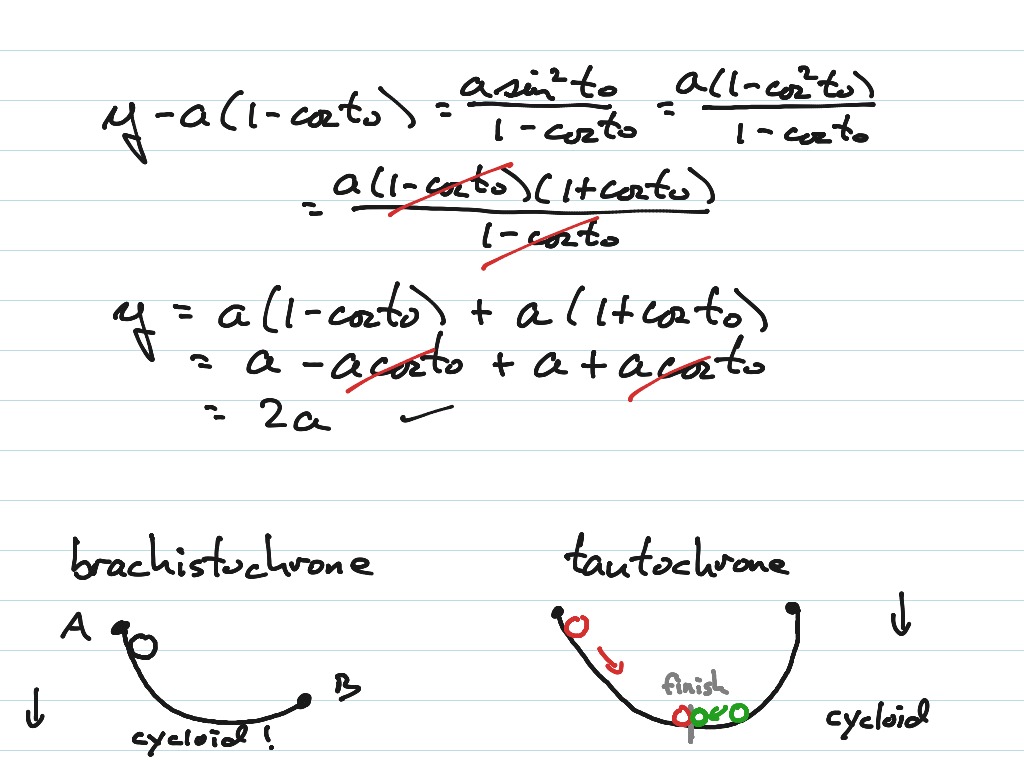 y - a(1 - cos t₀) = a sin² t₀ / (1 - cos t₀) = a(1 - cos² t₀) / (1 - cos t₀)
= a(1 - cos t₀)(1 + cos t₀) / (1 - cos t₀)
y = a(1 - cos t₀) + a(1 + cos t₀)
= a - a cos t₀ + a + a cos t₀
= 2a ✓
brachistochrone
tautochrone
A
B
cycloid!
finish
cycloid